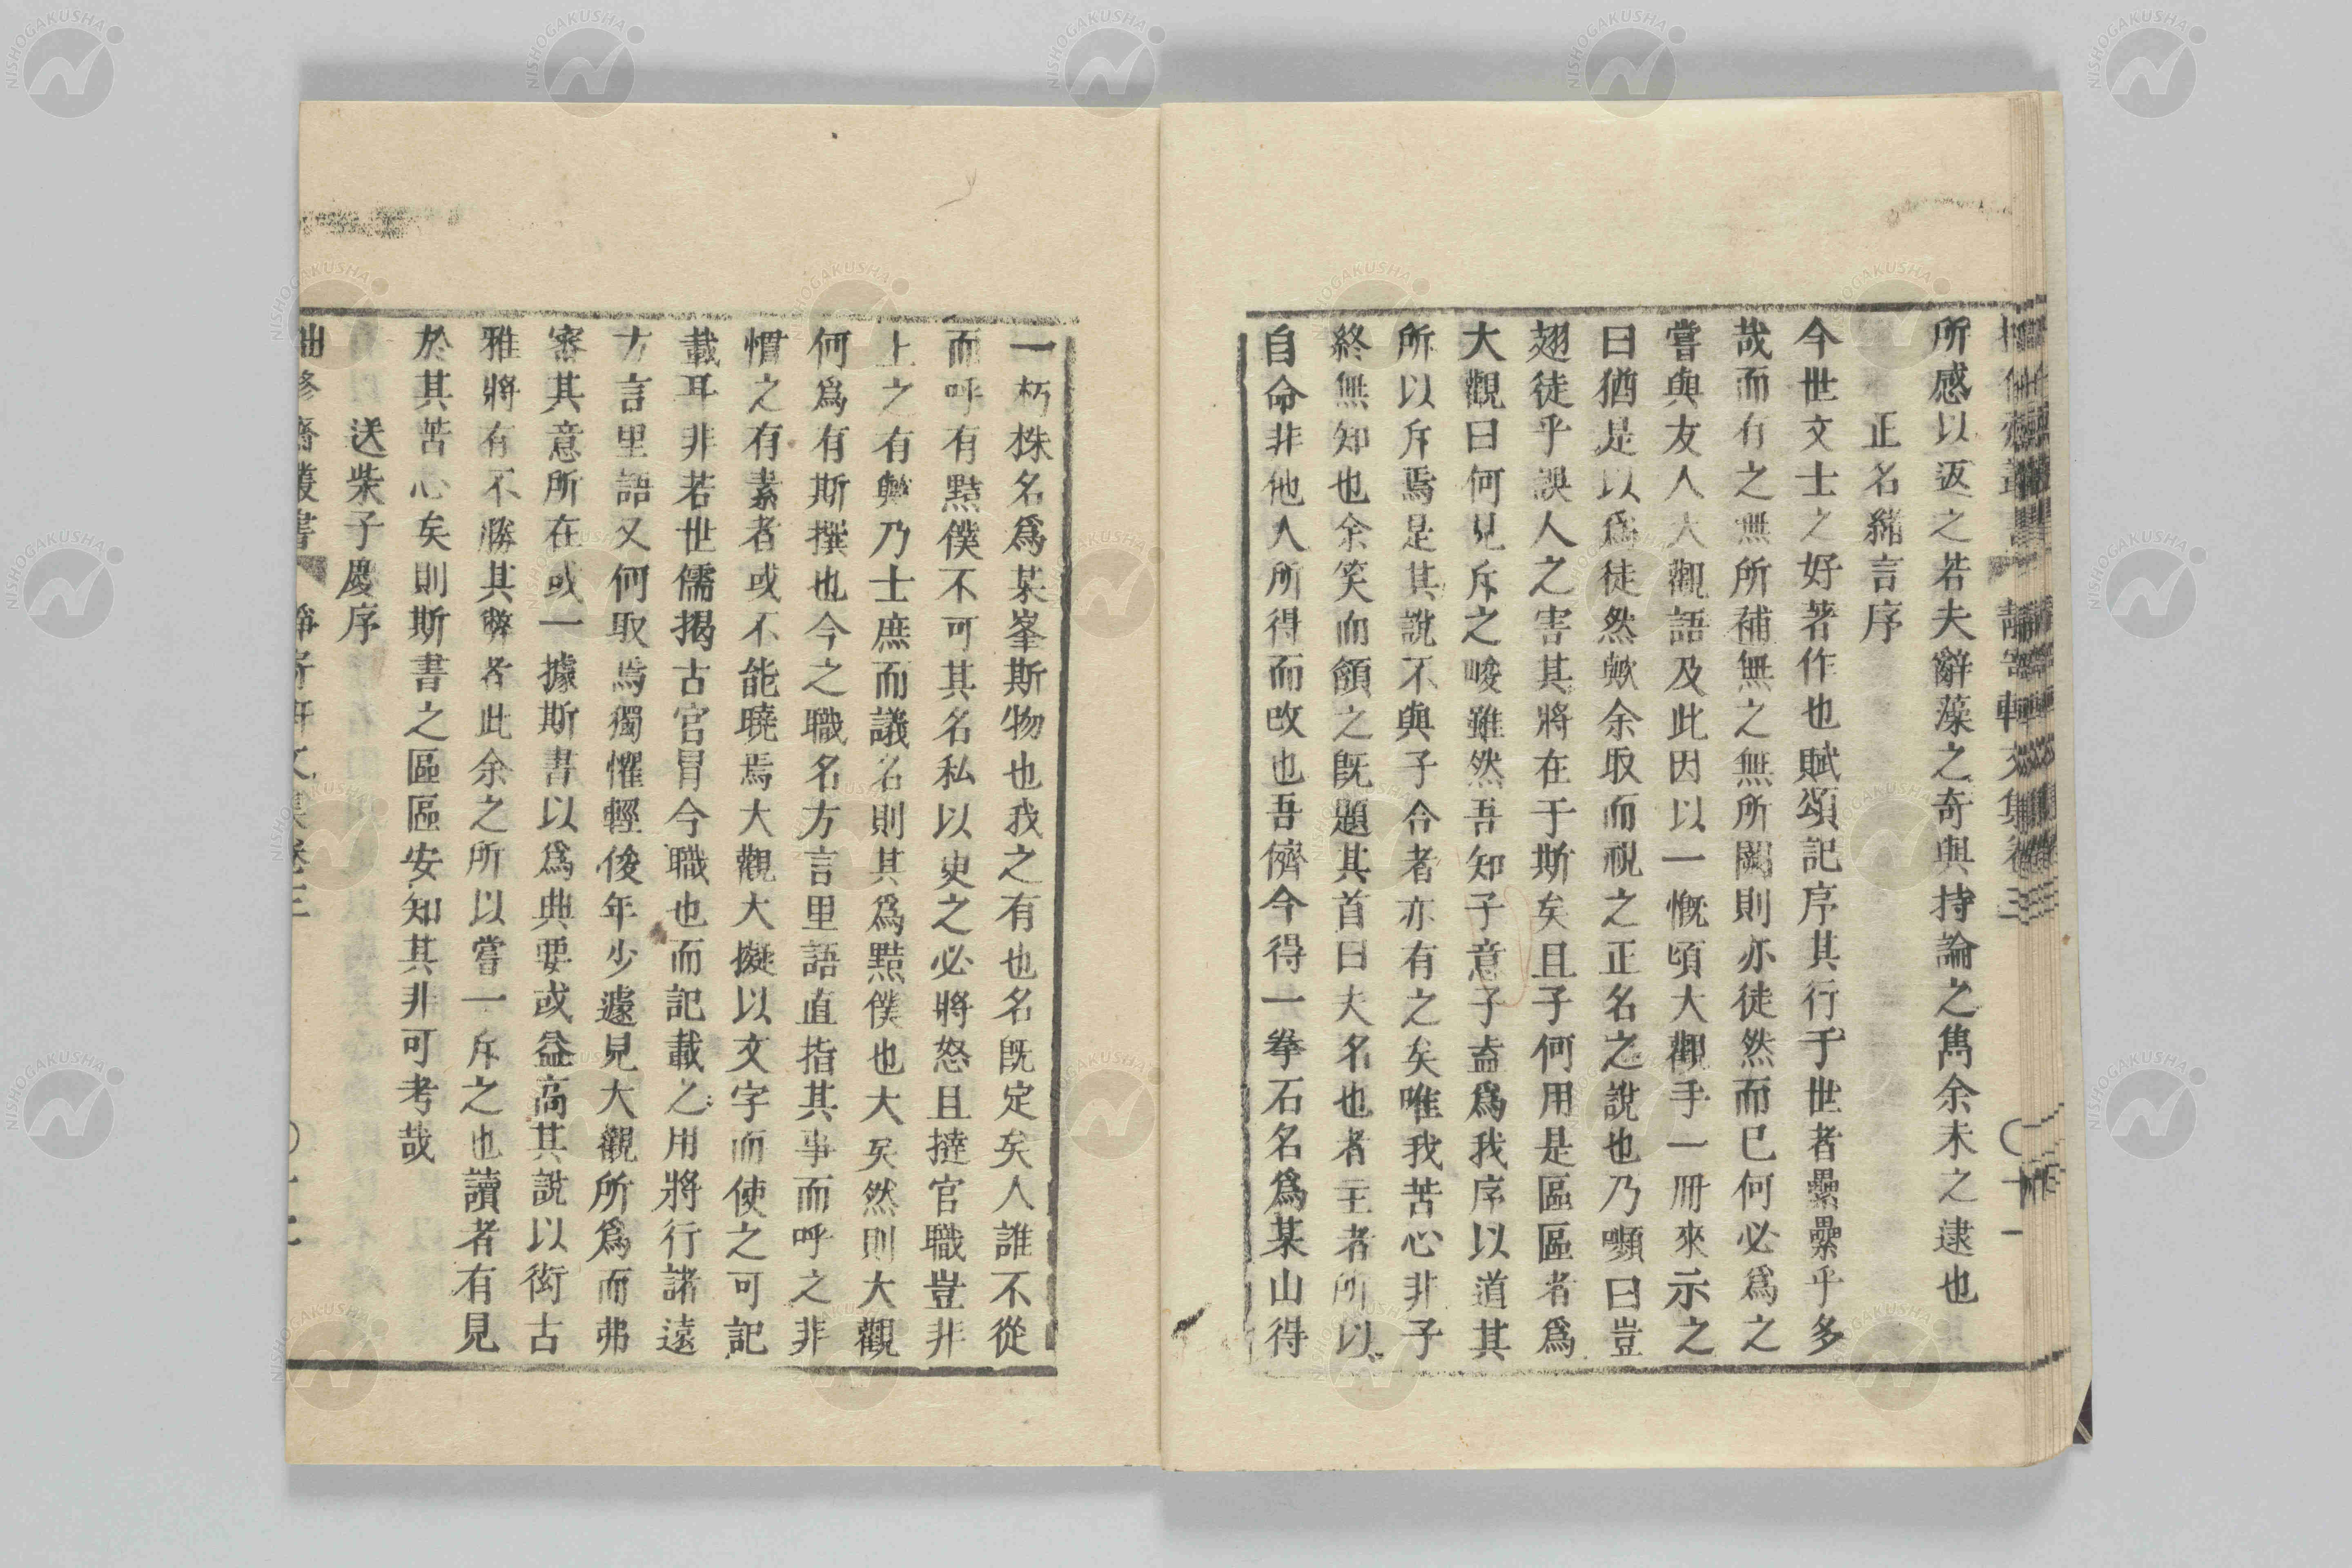 所感以返之若夫辭藻之奇與持論之雋余未之逮也
正名緒言序
今世文士之好著作也賦頌記序其行于世者纍纍乎多
哉而有之無所補無之無所闕則亦徒然而已何必爲之
嘗與友人大觀語及此因以一慨頃大觀手一冊來示之
曰猶是以爲徒然歟余取而視之正名之說也乃嚬曰豈
翅徒乎誤人之害其將在于斯矣且子何用是區區者爲
大觀曰何見斥之峻雖然吾知子意子盍爲我序以道其
所以斥焉是其說不與子合者亦有之矣唯我苦心非子
終無知也余笑而頷之旣題其首曰夫名也者主者所以
自命非他人所得而改也吾儕今得一拳石名爲某山得
一朽株名爲某峯斯物也我之有也名旣定矣人誰不從
而呼有黠僕不可其名私以更之必將怒且撻官職豈非
上之有歟乃士庶而議名則其爲黠僕也大矣然則大觀
何爲有斯撰也今之職名方言里語直指其事而呼之非
慣之有素者或不能曉焉大觀大擬以文字而使之可記
載耳非若世儒揭古官冒今職也而記載之用將行諸遠
方言里語又何取焉獨懼輕俊年少遽見大觀所爲而弗
審其意所在或一據斯書以爲典要或益高其說以衒古
雅將有不勝其弊者此余之所以嘗一斥之也讀者有見
於其苦心矣則斯書之區區安知其非可考哉
送柴子慶序
叢書 文集卷三